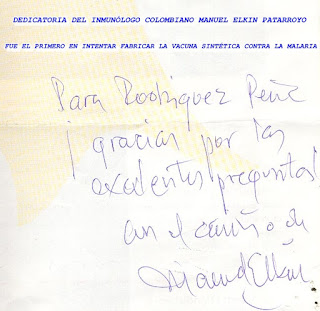 DEDICATORIA DEL INMUNÓLOGO COLOMBIANO MANUEL ELKIN PATARROYO
FUE EL PRIMERO EN INTENTAR FABRICAR LA VACUNA SINTÉTICA CONTRA LA MALARIA
Para Rodríguez Peña
¡gracias por las
excelentes preguntas!
con el cariño de
Manuel Elkin